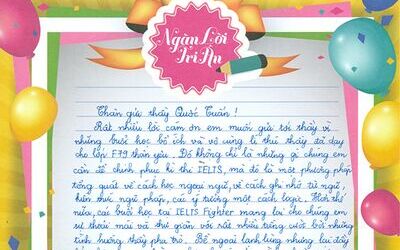 Ngàn Lời
Tri Ân
Thân gửi thầy Quốc Tuấn!
Rất nhiều lời cảm ơn em muốn gửi tới thầy vì
những buổi học bổ ích và vô cùng lí thú thầy đã dạy
cho lớp F79 thân yêu. Đó không chỉ là những gì chúng em
cần để chinh phục kì thi IELTS, mà đó là một phương pháp
tổng quát về cách học ngoại ngữ, về cách ghi nhớ từ ngữ,
hiểu thực ngữ pháp, cài ý tưởng một cách logic. Hơn thế
nữa, các buổi học tại IELTS Fighter mang lại cho chúng em
sự thoải mái và thư giãn với rất nhiều tiếng cười bởi những
tình huống thầy phụ trò. Bề ngoài lạnh lùng nhưng lại đầy